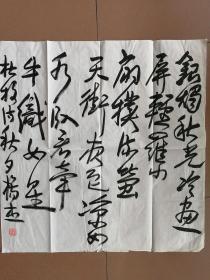 銀燭秋光冷畫
屏輕羅小
扇撲流螢
天街夜色涼如
水卧看牽
牛織女星
杜牧诗秋夕